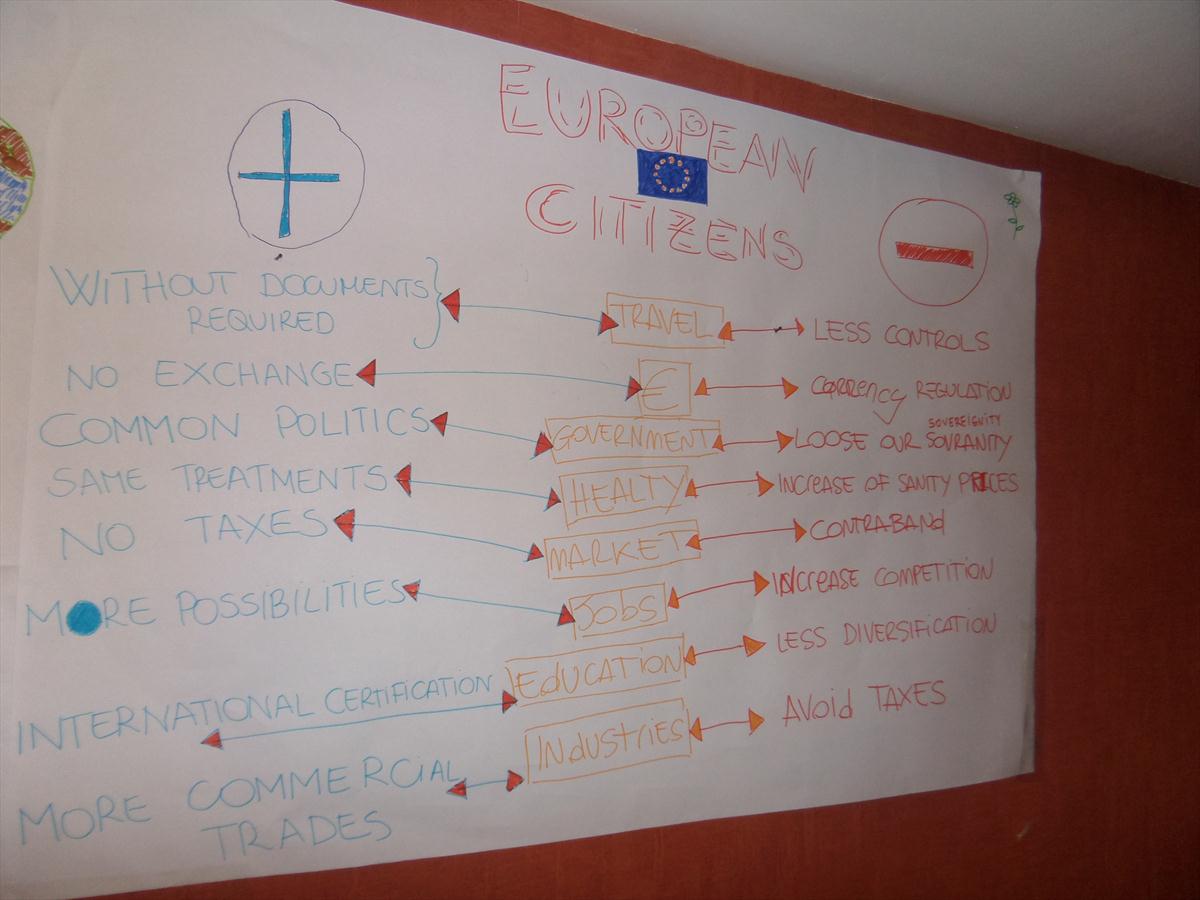 EUROPEAN
CITIZENS
WITHOUT DOCUMENTS
REQUIRED
TRAVEL
LESS CONTROLS
NO EXCHANGE
€
CORRENCY REGULATION
COMMON POLITICS
GOVERNMENT
SOVEREIGNITY
LOOSE OUR SOVRANITY
SAME TREATMENTS
HEALTY
INCREASE OF SANITY PRICES
NO TAXES
MARKET
CONTRABANd
MORE POSSIBILITIES
Jobs
INCREASE COMPETITION
INTERNATIONAL CERTIFICATION
EdUCATION
LESS DIVERSIFICATION
MORE COMMERCIAL
TRADES
INdUStRiES
AVOid TAXES